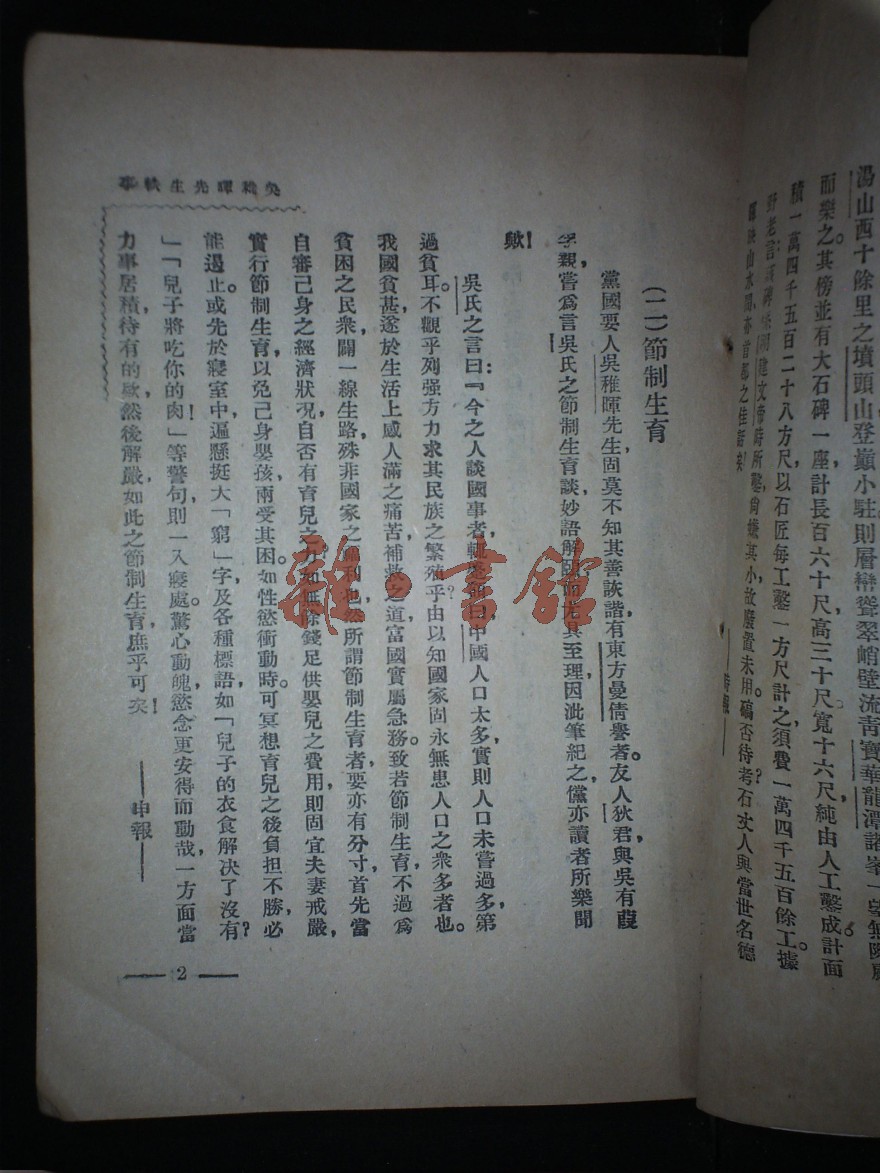 湯山西十餘里之墳頭山登巔小駐則層巒聳翠峭壁流靑寶華龍潭諸峯一望無際
而樂之。其傍並有大石碑一座計長百六十尺高三十尺寬十六尺純由人工鑿成計面
積一萬四千五百二十八方尺以石匠每工鑿一方尺計之須費一萬四千五百餘工據
野老言建文帝時所鑿尙嫌其小故廢置未用確否待考石丈人與當世名德
山水間亦首都之佳話矣
(二)節制生育
黨國要人吳稚暉先生固莫不知其善詼諧有東方曼倩譽者。友人狄君與吳有葭
莩親嘗爲言吳氏之節制生育談妙語解頤而尤具至理因泚筆紀之儻亦讀者所樂聞
歟!
吳氏之言曰:『今之人談國事者輒曰中國人口太多實則人口未嘗過多第
過貧耳。不觀乎列强方力求其民族之繁殖乎?由以知國家固永無患人口之衆多者也。
我國貧甚遂於生活上感人滿之痛苦補救之道富國實屬急務。致若節制生育不過爲
貧困之民衆闢一線生路殊非國家之福利也然所謂節制生育者要亦有分寸首先當
自審己身之經濟狀况自否有育兒之力?如無餘錢足供嬰兒之費用則固宜夫妻戒嚴,
實行節制生育以免己身嬰孩兩受其困。如性慾衝動時可冥想育兒之後負担不勝必
能遏止。或先於寢室中遍懸挺大「窮」字及各種標語如「兒子的衣食解决了沒有?
」「兒子將吃你的肉!」等警句則一入寢處驚心動魄慾念更安得而動哉一方面當
力事居積待有的欵然後解嚴如此之節制生育庶乎可矣!
——申報——
吳稚暉先生軼事
— 2 —
雜·書館